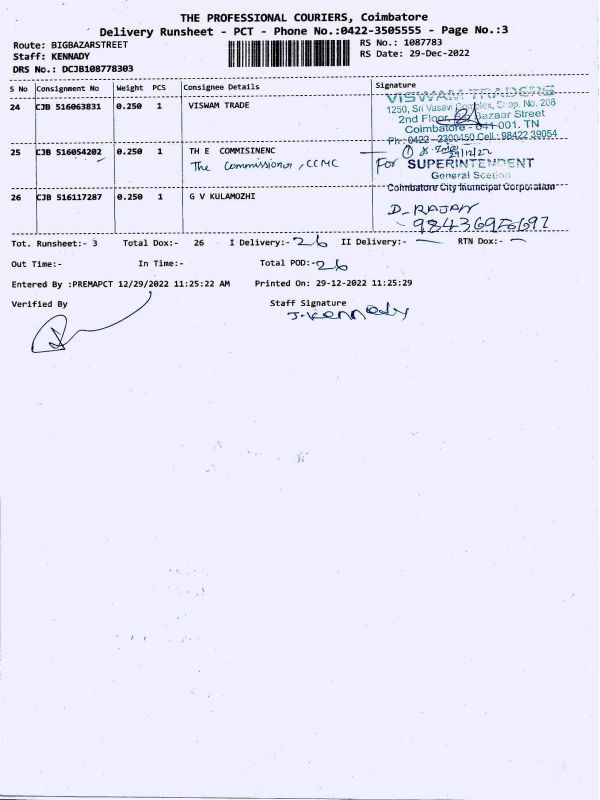 THE PROFESSIONAL COURIERS, Coimbatore
Delivery Runsheet - PCT - Phone No.:0422-3505555 - Page No.:3
Route: BIGBAZARSTREET
RS No.: 1087783
Staff: KENNADY
RS Date: 29-Dec-2022
DRS No.: DCJB108778303
S No Consignment No Weight PCS Consignee Details Signature
24 CJB 516063831 0.250 1 VISWAM TRADE
VISWAM TRADERS
1250, Sri Vasavi Complex, Shop. No. 206
2nd Floor, Bazaar Street
Coimbatore - 641 001. TN
Ph : 0422 - 2300450 Cell : 98422 39054
25 CJB 516054202 0.250 1 TH E COMMISINENC
The Commissioner, CCMC
29/12/22
For SUPERINTENDENT
General Section
Coimbatore City Municipal Corporation
26 CJB 516117287 0.250 1 G V KULAMOZHI
D-RAJAN
Tot. Runsheet:- 3 Total Dox:- 26 I Delivery:- 26 II Delivery:- — RTN Dox:- —
Out Time:- In Time:- Total POD:- 26
Entered By :PREMAPCT 12/29/2022 11:25:22 AM Printed On: 29-12-2022 11:25:29
Verified By Staff Signature
J.Kennady